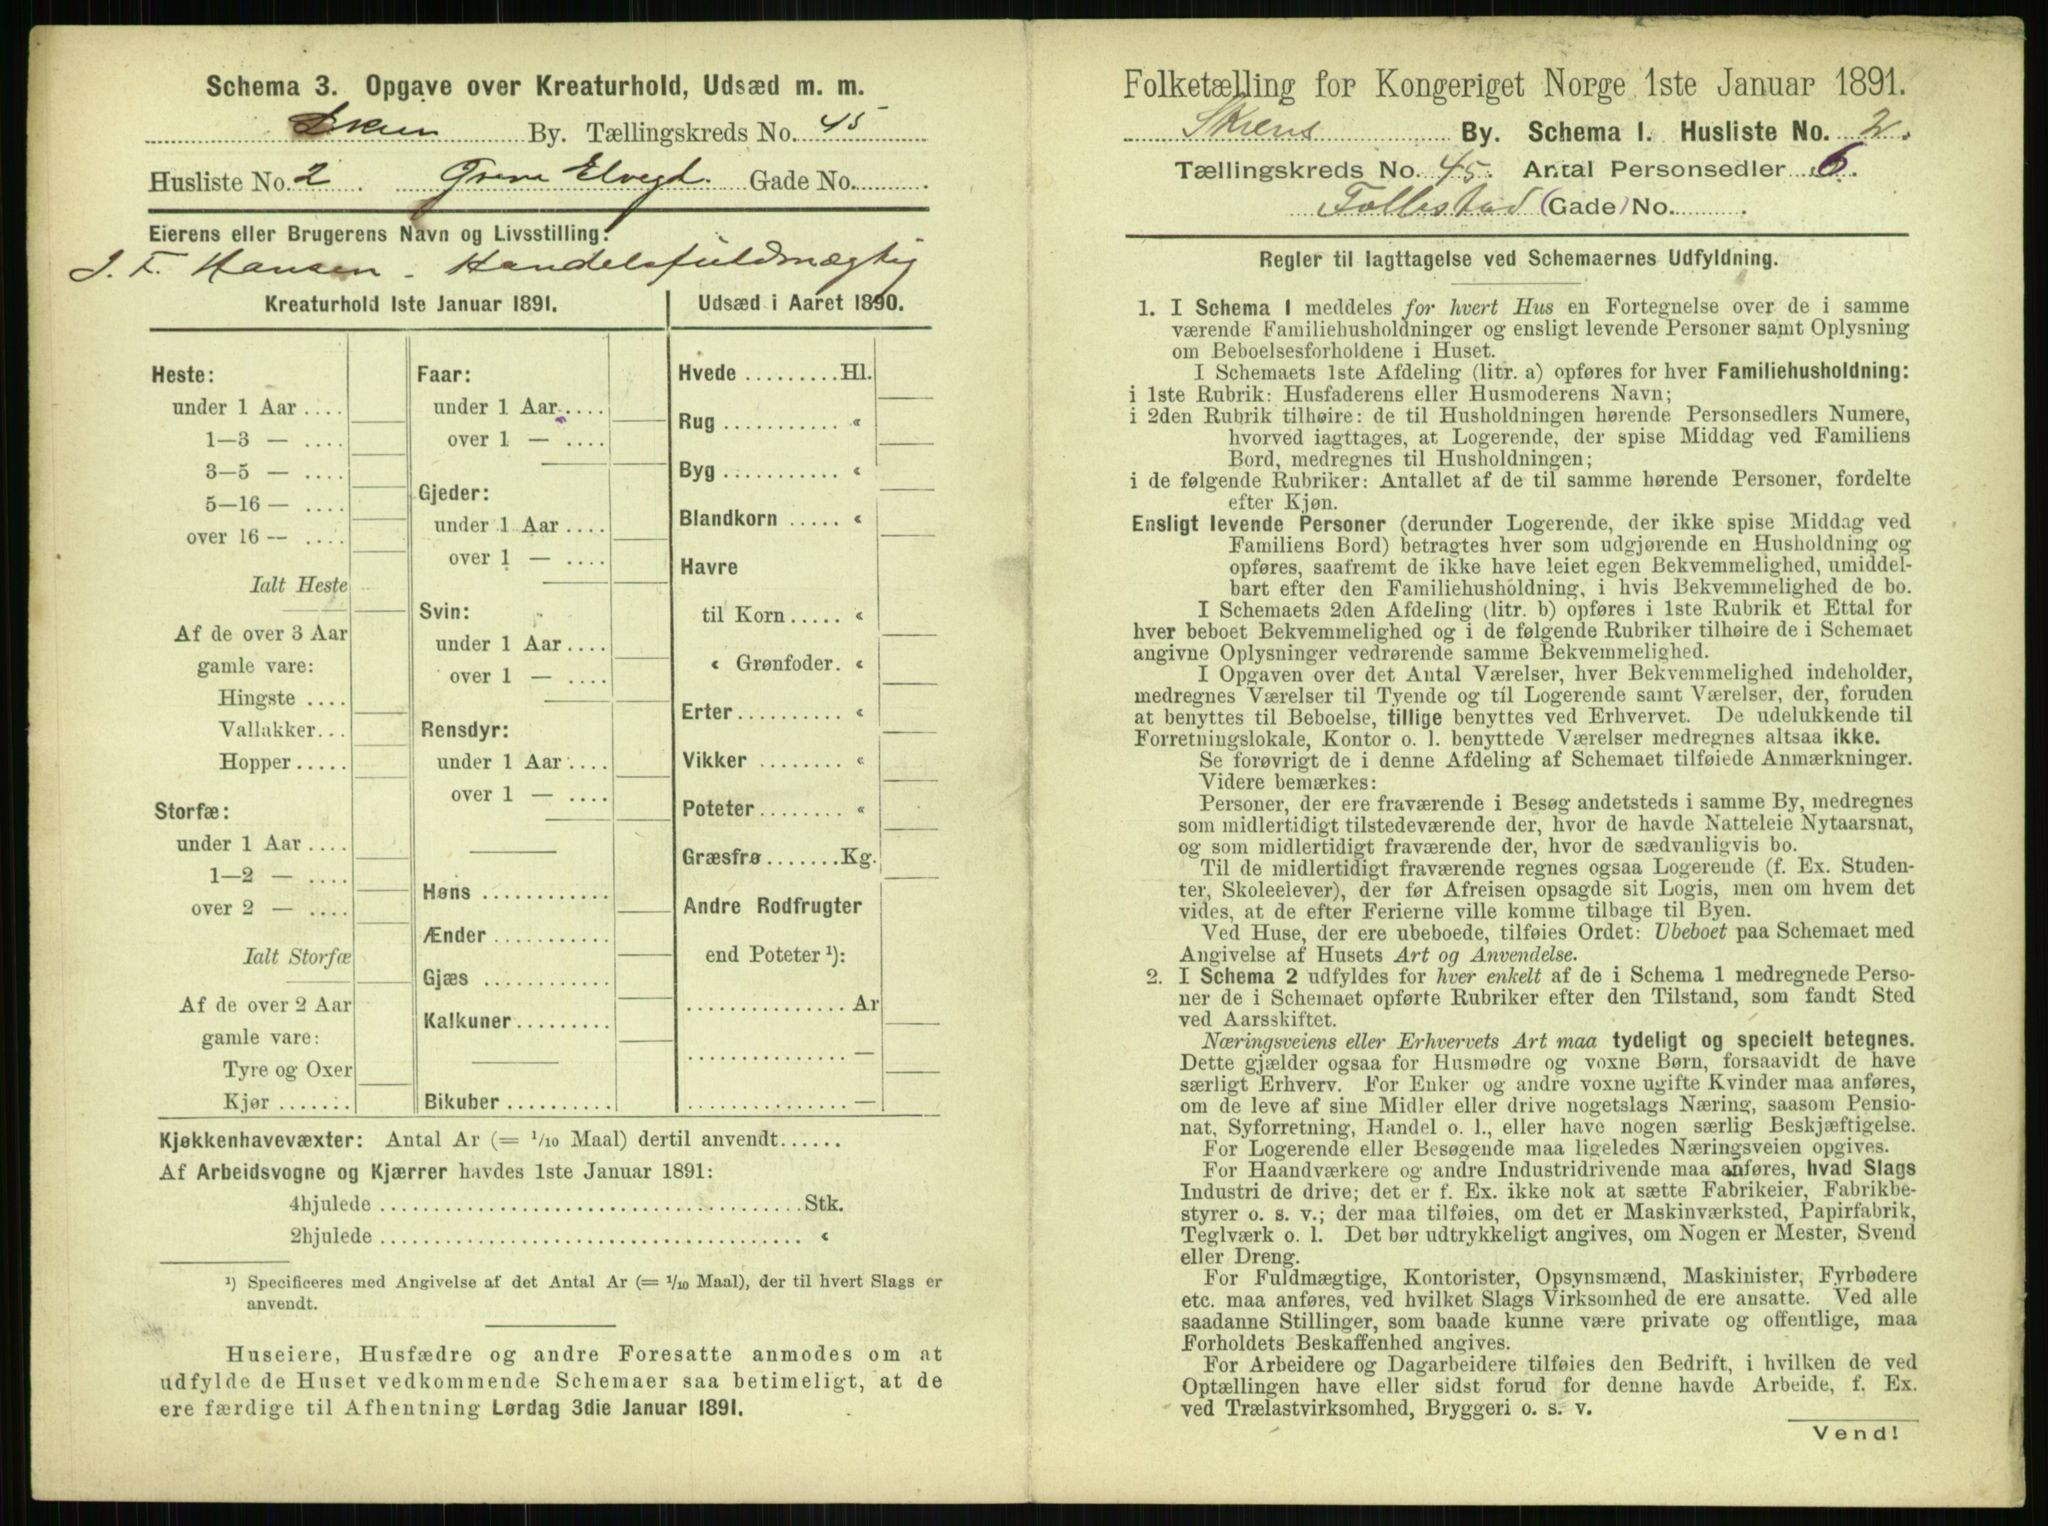 Schema 3. Opgave over Kreaturhold, Udsæd m. m.
Skien By. Tællingskreds No. 45
Husliste No. 2 . Elvegd. Gade No. .
Eierens eller Brugerens Navn og Livsstilling:
J. F. Hansen - Handelsfuldmægtig
Kreaturhold 1ste Januar 1891.
Heste:
under 1 Aar ....
1—3 — ....
3—5 — ....
5—16 — ....
over 16 — ....
Ialt Heste
Af de over 3 Aar
gamle vare:
Hingste ....
Vallakker...
Hopper.....
Storfæ:
under 1 Aar ....
1—2 — ....
over 2 — ....
Ialt Storfæ
Af de over 2 Aar
gamle vare:
Tyre og Oxer
Kjør .......
Faar:
under 1 Aar....
over 1 — ....
Gjeder:
under 1 Aar ....
over 1 — ....
Svin:
under 1 Aar ....
over 1 — ....
Rensdyr:
under 1 Aar ....
over 1 — ....
Høns ............
Ænder ...........
Gjæs ............
Kalkuner.........
Bikuber ..........
Udsæd i Aaret 1890.
Hvede .........Hl.
Rug ........... «
Byg ........... «
Blandkorn ..... «
Havre
til Korn..... «
« Grønfoder. «
Erter.......... «
Vikker ........ «
Poteter........ «
Græsfrø .......Kg.
Andre Rodfrugter
end Poteter ¹):
...............Ar
............... —
............... —
Kjøkkenhavevæxter: Antal Ar (= 1/10 Maal) dertil anvendt......
Af Arbeidsvogne og Kjærrer havdes 1ste Januar 1891:
4hjulede ........................................Stk.
2hjulede ........................................ «
¹) Specificeres med Angivelse af det Antal Ar (= 1/10 Maal), der til hvert Slags er
anvendt.
Huseiere, Husfædre og andre Foresatte anmodes om at
udfylde de Huset vedkommende Schemaer saa betimeligt, at de
ere færdige til Afhentning Lørdag 3die Januar 1891.
Folketælling for Kongeriget Norge 1ste Januar 1891.
Skiens By. Schema I. Husliste No. 2.
Tællingskreds No. 45. Antal Personsedler 6.
Follestad (Gade) No. .
Regler til Iagttagelse ved Schemaernes Udfyldning.
1. I Schema 1 meddeles for hvert Hus en Fortegnelse over de i samme
værende Familiehusholdninger og ensligt levende Personer samt Oplysning
om Beboelsesforholdene i Huset.
I Schemaets 1ste Afdeling (litr. a) opføres for hver Familiehusholdning:
i 1ste Rubrik: Husfaderens eller Husmoderens Navn;
i 2den Rubrik tilhøire: de til Husholdningen hørende Personsedlers Numere,
hvorved iagttages, at Logerende, der spise Middag ved Familiens
Bord, medregnes til Husholdningen;
i de følgende Rubriker: Antallet af de til samme hørende Personer, fordelte
efter Kjøn.
Ensligt levende Personer (derunder Logerende, der ikke spise Middag ved
Familiens Bord) betragtes hver som udgjørende en Husholdning og
opføres, saafremt de ikke have leiet egen Bekvemmelighed, umiddel-
bart efter den Familiehusholdning, i hvis Bekvemmelighed de bo.
I Schemaets 2den Afdeling (litr. b) opføres i 1ste Rubrik et Ettal for
hver beboet Bekvemmelighed og i de følgende Rubriker tilhøire de i Schemaet
angivne Oplysninger vedrørende samme Bekvemmelighed.
I Opgaven over det Antal Værelser, hver Bekvemmelighed indeholder,
medregnes Værelser til Tyende og til Logerende samt Værelser, der, foruden
at benyttes til Beboelse, tillige benyttes ved Erhvervet. De udelukkende til
Forretningslokale, Kontor o. l. benyttede Værelser medregnes altsaa ikke.
Se forøvrigt de i denne Afdeling af Schemaet tilføiede Anmærkninger.
Videre bemærkes:
Personer, der ere fraværende i Besøg andetsteds i samme By, medregnes
som midlertidigt tilstedeværende der, hvor de havde Natteleie Nytaarsnat,
og som midlertidigt fraværende der, hvor de sædvanligvis bo.
Til de midlertidigt fraværende regnes ogsaa Logerende (f. Ex. Studen-
ter, Skoleelever), der før Afreisen opsagde sit Logis, men om hvem det
vides, at de efter Ferierne ville komme tilbage til Byen.
Ved Huse, der ere ubeboede, tilføies Ordet: Ubeboet paa Schemaet med
Angivelse af Husets Art og Anvendelse.
2. I Schema 2 udfyldes for hver enkelt af de i Schema 1 medregnede Perso-
ner de i Schemaet opførte Rubriker efter den Tilstand, som fandt Sted
ved Aarsskiftet.
Næringsveiens eller Erhvervets Art maa tydeligt og specielt betegnes.
Dette gjælder ogsaa for Husmødre og voxne Børn, forsaavidt de have
særligt Erhverv. For Enker og andre voxne ugifte Kvinder maa anføres,
om de leve af sine Midler eller drive nogetslags Næring, saasom Pensio-
nat, Syforretning, Handel o. l., eller have nogen særlig Beskjæftigelse.
For Logerende eller Besøgende maa ligeledes Næringsveien opgives.
For Haandværkere og andre Industridrivende maa anføres, hvad Slags
Industri de drive; det er f. Ex. ikke nok at sætte Fabrikeier, Fabrikbe-
styrer o. s. v.; der maa tilføies, om det er Maskinværksted, Papirfabrik,
Teglværk o. l. Det bør udtrykkeligt angives, om Nogen er Mester, Svend
eller Dreng.
For Fuldmægtige, Kontorister, Opsynsmænd, Maskinister, Fyrbødere
etc. maa anføres, ved hvilket Slags Virksomhed de ere ansatte. Ved alle
saadanne Stillinger, som baade kunne være private og offentlige, maa
Forholdets Beskaffenhed angives.
For Arbeidere og Dagarbeidere tilføies den Bedrift, i hvilken de ved
Optællingen have eller sidst forud for denne havde Arbeide, f. Ex.
ved Trælastvirksomhed, Bryggeri o. s. v.
Vend!